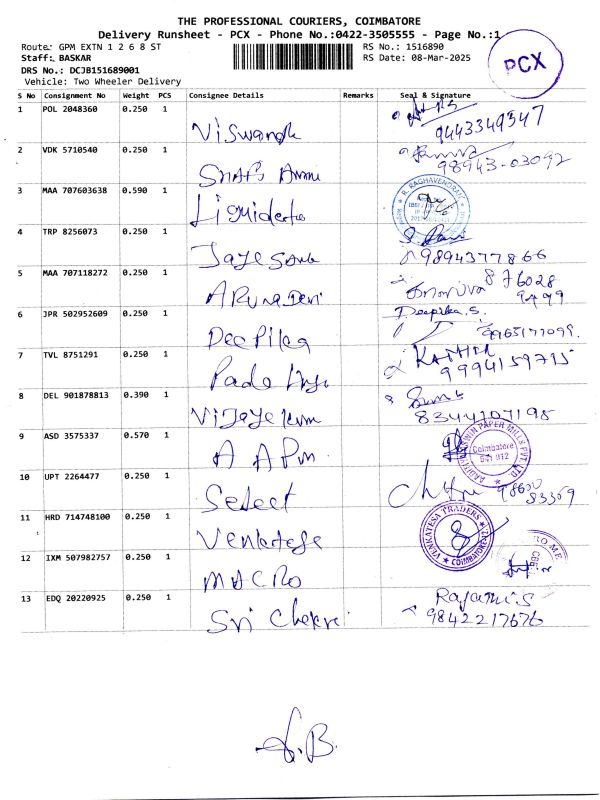 THE PROFESSIONAL COURIERS, COIMBATORE
Delivery Runsheet - PCX - Phone No.:0422-3505555 - Page No.:1
Route: GPM EXTN 1 2 6 8 ST RS No.: 1516890
Staff: BASKAR RS Date: 08-Mar-2025
DRS No.: DCJB151689001
Vehicle: Two Wheeler Delivery
PCX
S No Consignment No Weight PCS Consignee Details Remarks Seal & Signature
1 POL 2048360 0.250 1
9443349347
2 VDK 5710540 0.250 1
98943-03092
3 MAA 707603638 0.590 1 R. RAGHAVENDRAN
4 TRP 8256073 0.250 1
9894377866
5 MAA 707118272 0.250 1 876028
ARUNA Devi 9499
6 JPR 502952609 0.250 1 Deepika.S.
Deepika 9965177099
7 TVL 8751291 0.250 1
9994159715
8 DEL 901878813 0.390 1
Vijayekum 8344107195
9 ASD 3575337 0.570 1 ASWIN PAPER MILLS PVT. LTD.
Coimbatore
641 012
10 UPT 2264477 0.250 1 98600
Select 53359
11 HRD 714748100 0.250 1 VENKATESA TRADERS
Venkatesa COIMBATORE-12
12 IXM 507982757 0.250 1
MACRO
13 EDQ 20220925 0.250 1
Sri 9842217676
S.B.